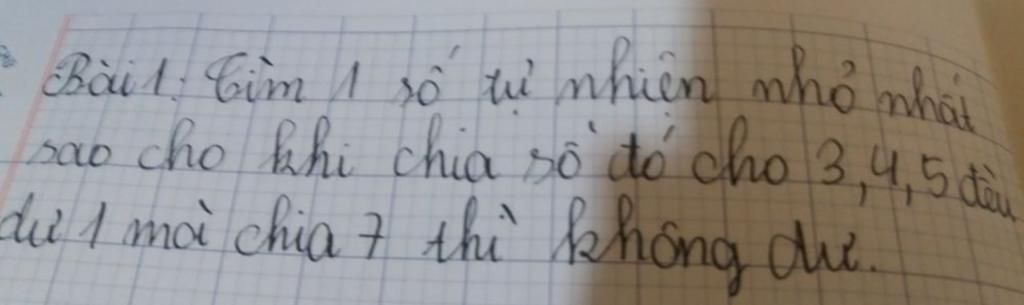 Bài 1: Tìm 1 số tự nhiên nhỏ nhất
sao cho khi chia số đó cho 3, 4, 5 đều
dư 1 mà chia 7 thì không dư.